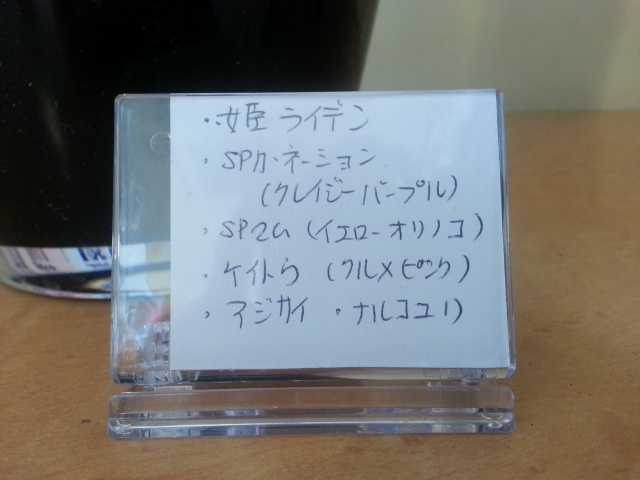 ・姫ライデン
・SPカーネーション
(クレイジーパープル)
・SPマム(イエローオリノコ)
・ケイトウ(クルメピンク)
・アジサイ・ナルコユリ